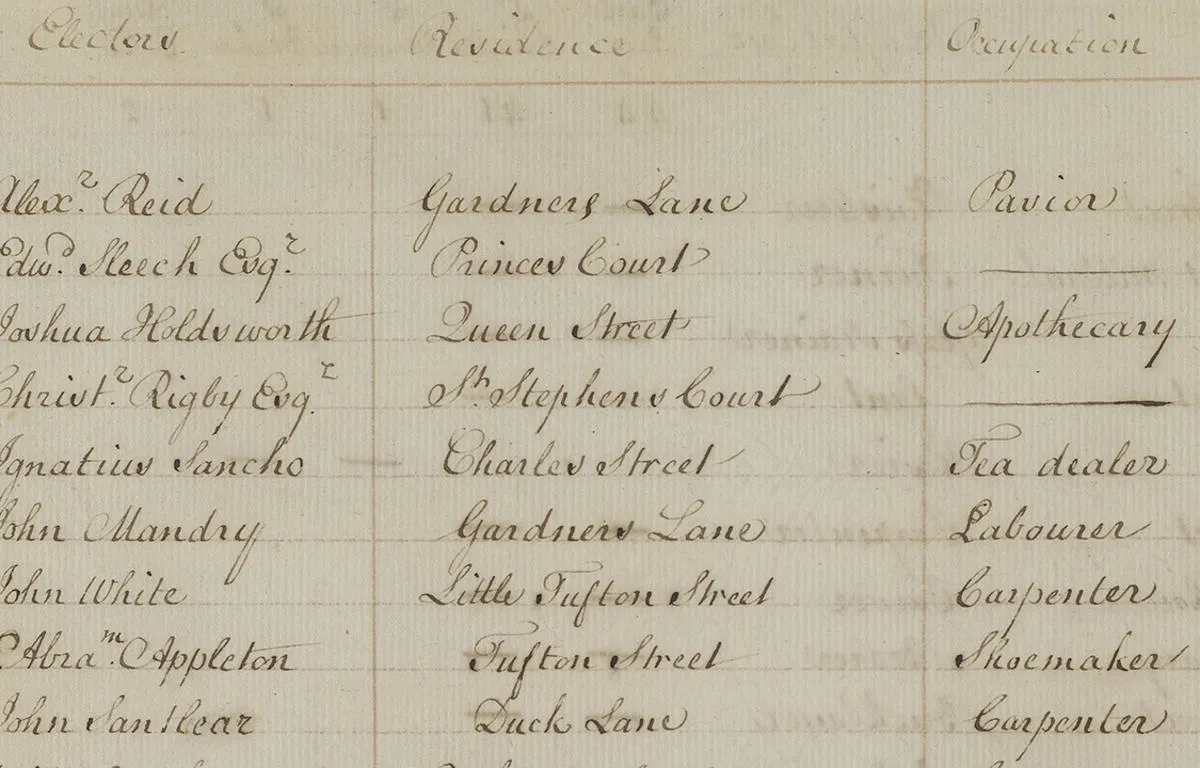 Electors Residence Occupation
Alex.r Reid Gardners Lane Pavior
Edw.d Sleech Esq.r Princes Court
Joshua Holdsworth Queen Street Apothecary
Christ.r Rigby Esq.r St. Stephens Court
Ignatius Sancho Charles Street Tea dealer
John Mandry Gardners Lane Labourer
John White Little Tufton Street Carpenter
Abra.m Appleton Tufton Street Shoemaker
John Duck Lane Carpenter